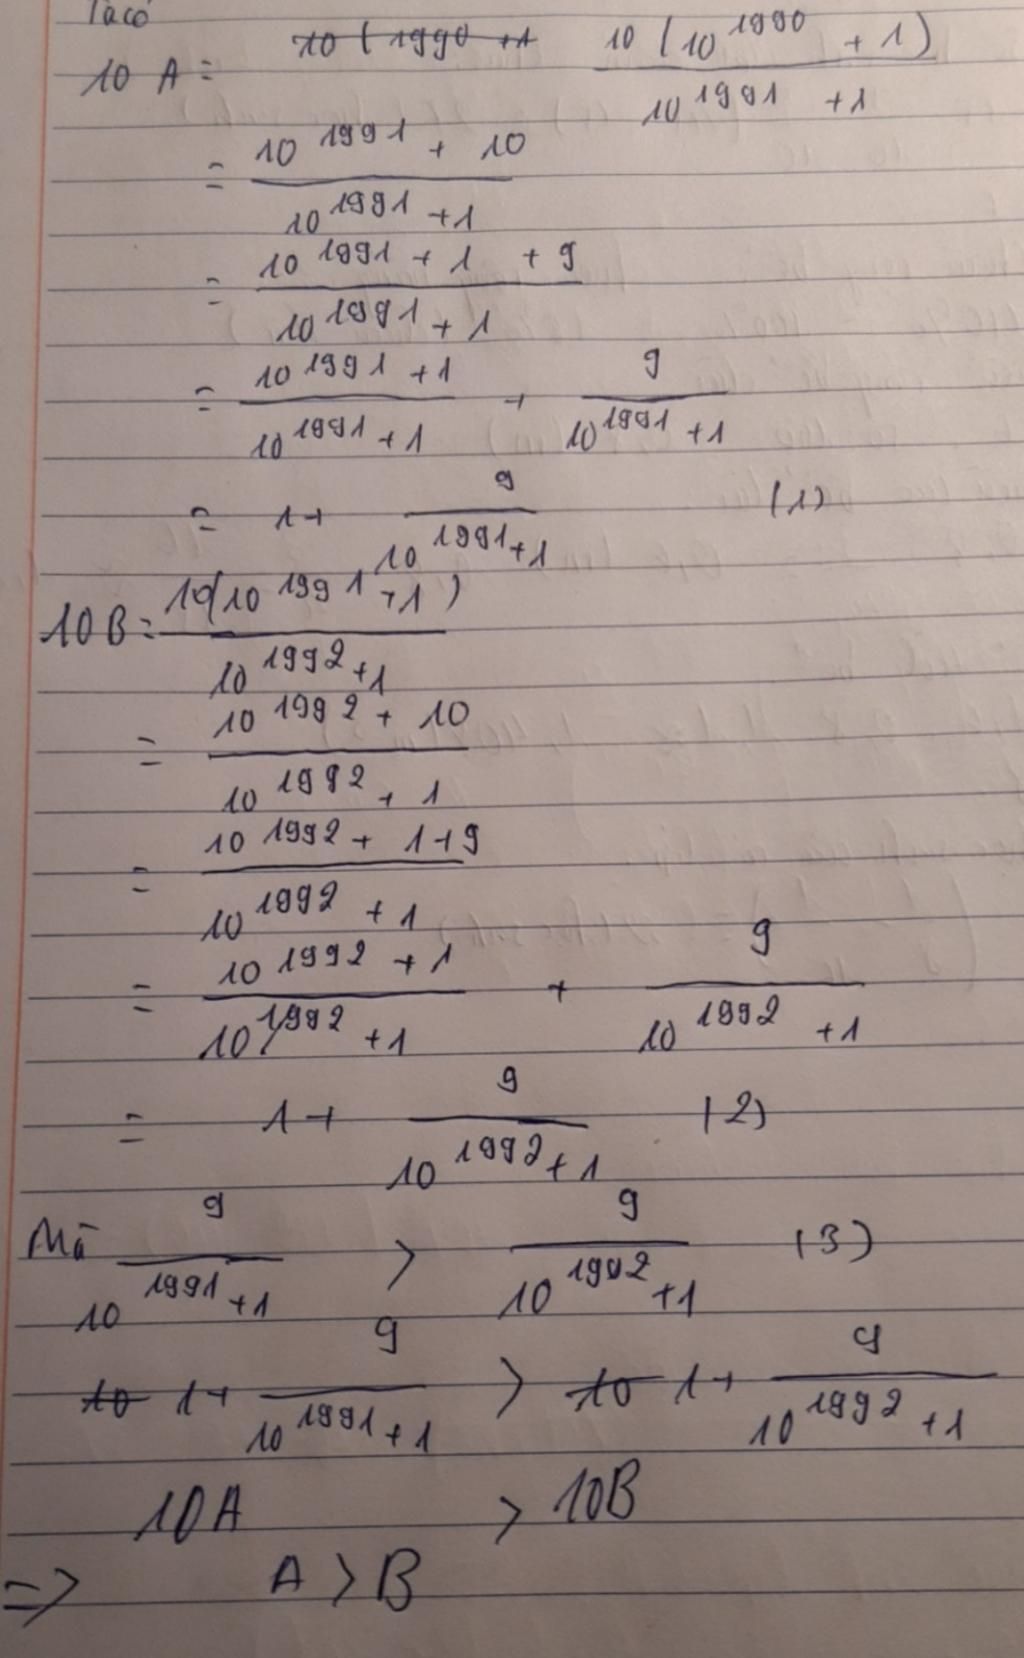 Ta có
10 A = ~~10 ( 1990 + 1~~ \frac{10 (10^{1990} + 1)}{10^{1991} + 1}
= \frac{10^{1991} + 10}{10^{1991} + 1}
= \frac{10^{1991} + 1 + 9}{10^{1991} + 1}
= \frac{10^{1991} + 1}{10^{1991} + 1} + \frac{9}{10^{1991} + 1}
= 1 + \frac{9}{10^{1991} + 1} (1)
10B = \frac{10(10^{1991} + 1)}{10^{1992} + 1}
= \frac{10^{1992} + 10}{10^{1992} + 1}
= \frac{10^{1992} + 1 + 9}{10^{1992} + 1}
= \frac{10^{1992} + 1}{10^{1992} + 1} + \frac{9}{10^{1992} + 1}
= 1 + \frac{9}{10^{1992} + 1} (2)
Mà \frac{9}{10^{1991} + 1} > \frac{9}{10^{1992} + 1} (3)
~~10~~ 1 + \frac{9}{10^{1991} + 1} > ~~10~~ 1 + \frac{9}{10^{1992} + 1}
10A > 10B
=> A > B